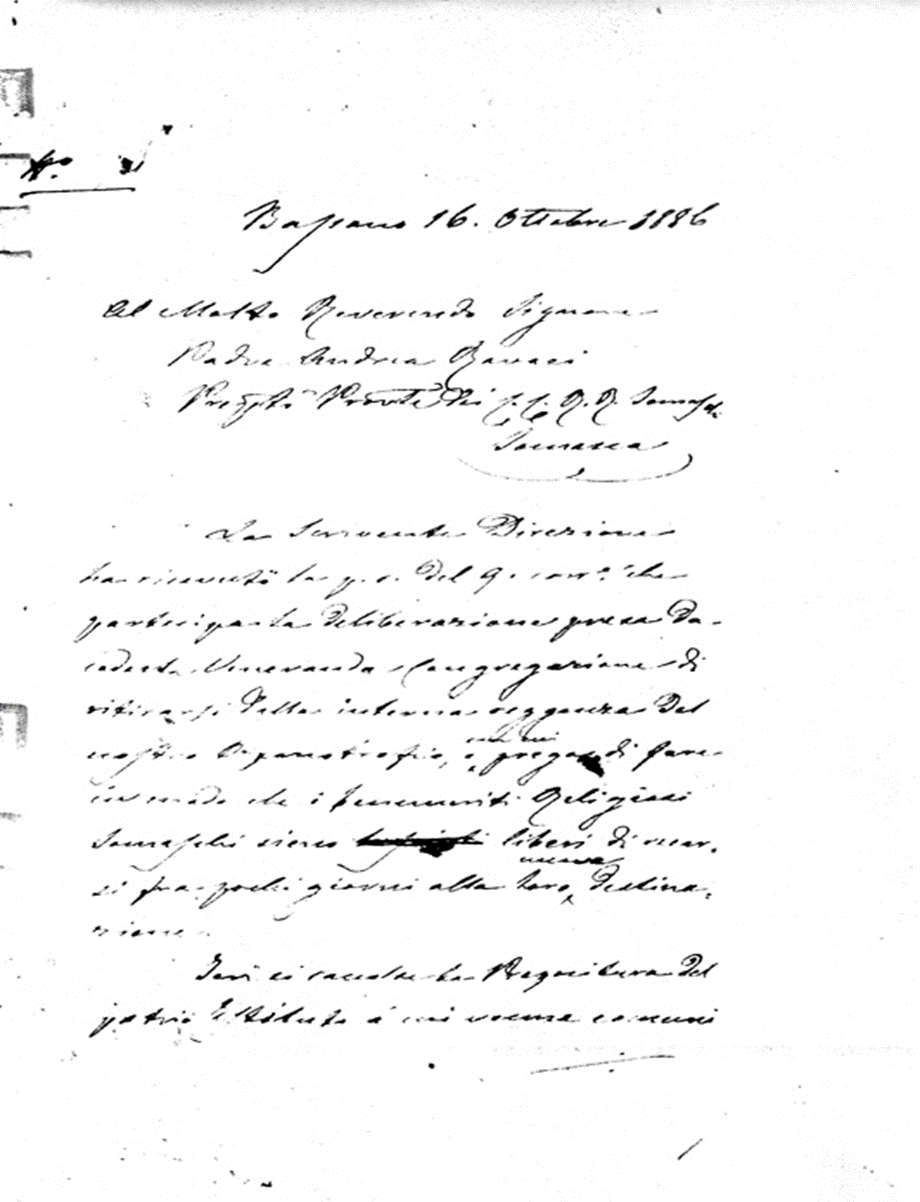 N.°
Bassano 16. Ottobre 1886
Al Molto Reverendo Signore
Padre Andrea Ravasi
Prep.to Prov.le dei C. C. R. R. Somaschi
Somasca
La scrivente Direzione
ha ricevuto la p. s. del 9. corr.e che
partecipa la deliberazione presa da
codesta Veneranda Congregazione di
ritirarsi dalla interna reggenza del
nostro Orfanotrofio, e, con cui prega di fare
in modo che i benemeriti Religiosi
Somaschi sieno liberi di recar-
si fra pochi giorni alla loro nuova destina-
zione.
Ieri si raccolse la Prepositura del
patrio Istituto a cui venne comuni